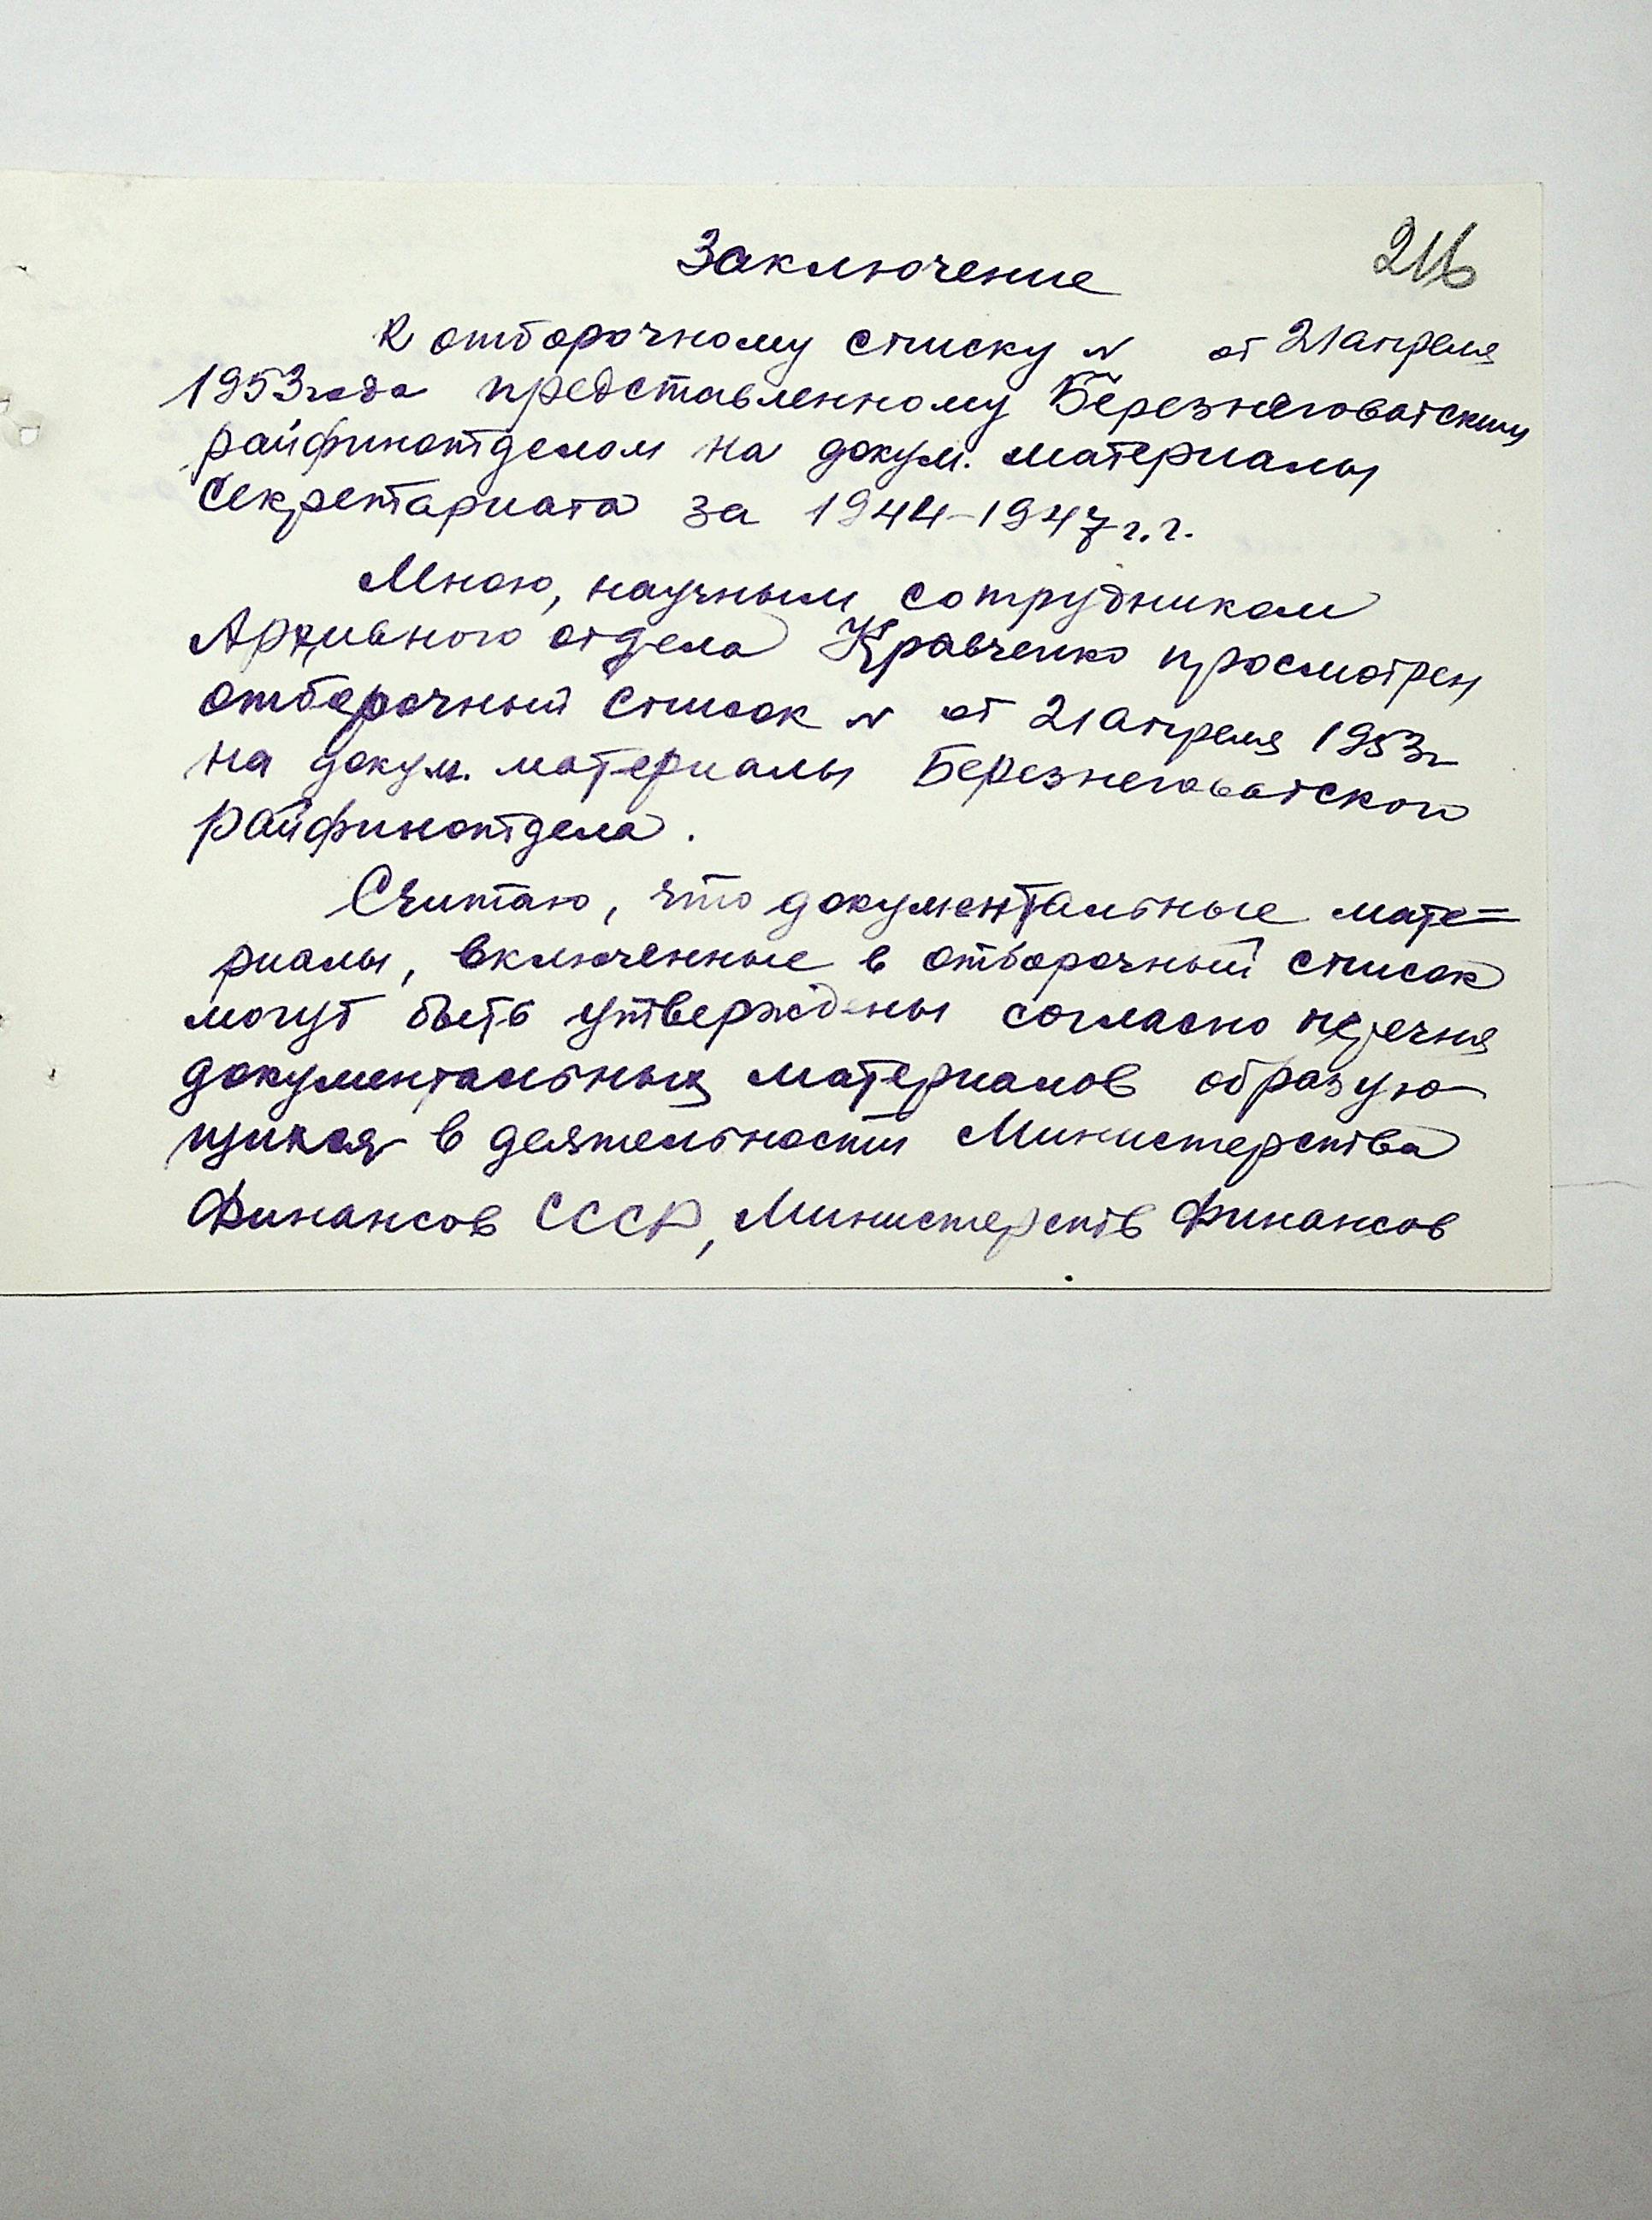 216
Заключение
к отборочному списку № от 21 апреля
1953 года представленному Березнеговатским
райфинотделом на докум. материалы
Секретариата за 1944-1947 г.г.
Мною, научным сотрудником
Архивного отдела Кравченко просмотрен
отборочный список № от 21 апреля 1953 г
на докум. материалы Березнеговатского
райфинотдела.
Считаю, что документальные мате=
риалы, включенные в отборочный список
могут быть утверждены согласно перечня
документальных материалов образую-
щихся в деятельности Министерства
Финансов СССР, Министерств Финансов